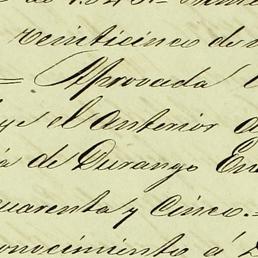 de 1.845.=
veinticinco de
= Aprovada
el anterior
de Durango En
uarenta y Cinco.=
onocimiento á